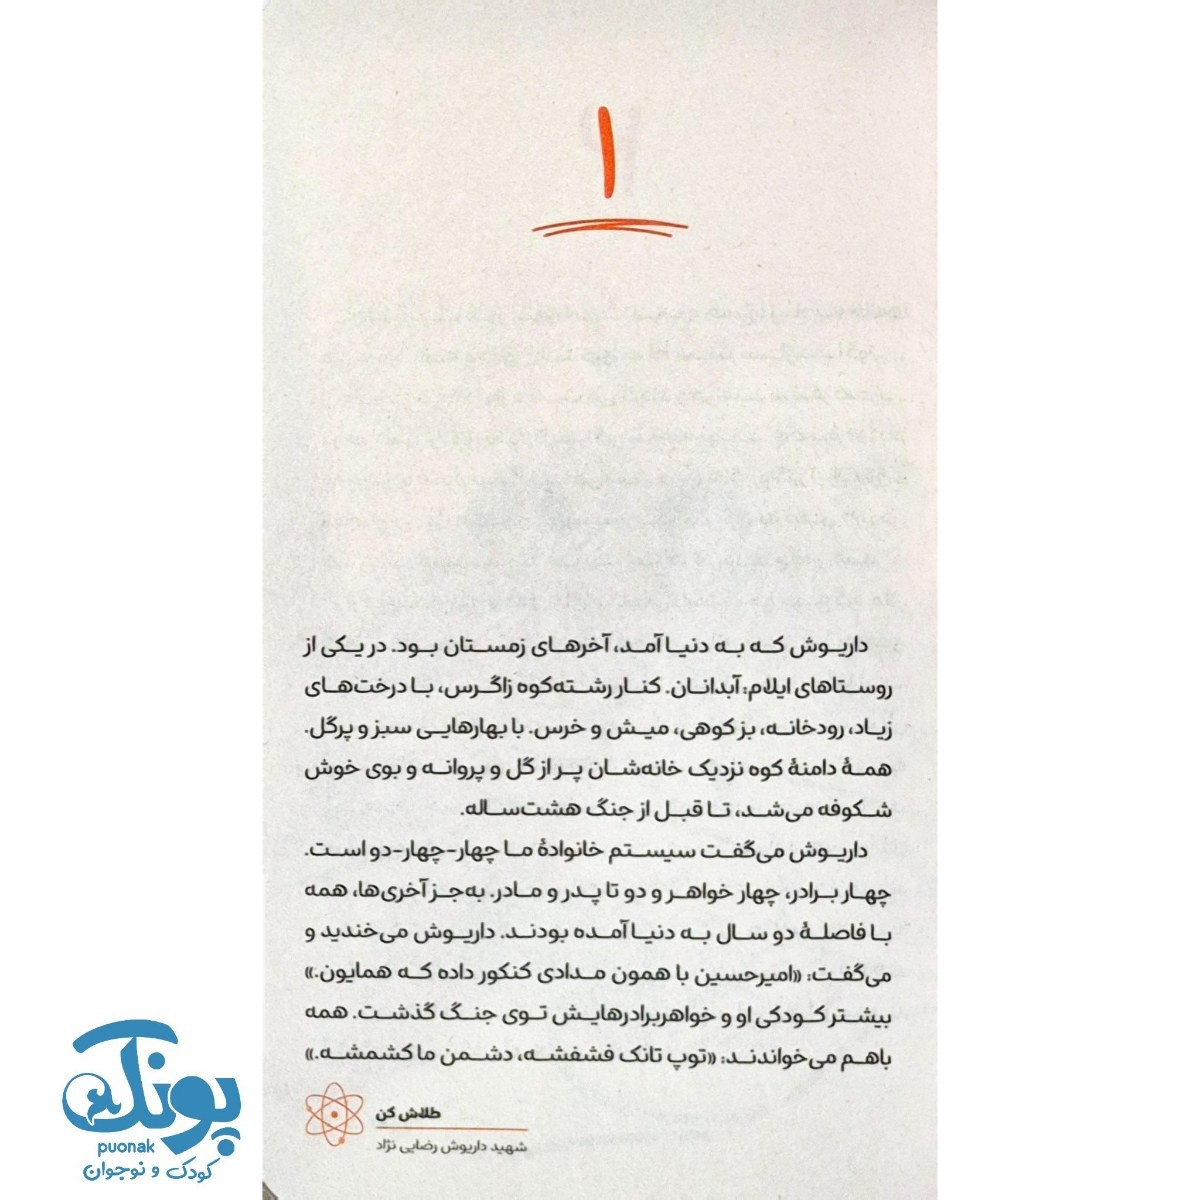 ۱
داریوش که به دنیا آمد، آخرهای زمستان بود. در یکی از
روستاهای ایلام: آبدانان. کنار رشته‌کوه زاگرس، با درخت‌های
زیاد، رودخانه، بز کوهی، میش و خرس. با بهارهایی سبز و پرگل.
همهٔ دامنهٔ کوه نزدیک خانه‌شان پر از گل و پروانه و بوی خوش
شکوفه می‌شد، تا قبل از جنگ هشت‌ساله.
داریوش می‌گفت سیستم خانوادهٔ ما چهار-چهار-دو است.
چهار برادر، چهار خواهر و دو تا پدر و مادر. به‌جز آخری‌ها، همه
با فاصلهٔ دو سال به دنیا آمده بودند. داریوش می‌خندید و
می‌گفت: «امیرحسین با همون مدادی کنکور داده که همایون.»
بیشتر کودکی او و خواهربرادرهایش توی جنگ گذشت. همه
باهم می‌خواندند: «توپ تانک فشفشه، دشمن ما کشمشه.»
طلاش کن
شهید داریوش رضایی نژاد
پونک
puonak
کودک و نوجوان